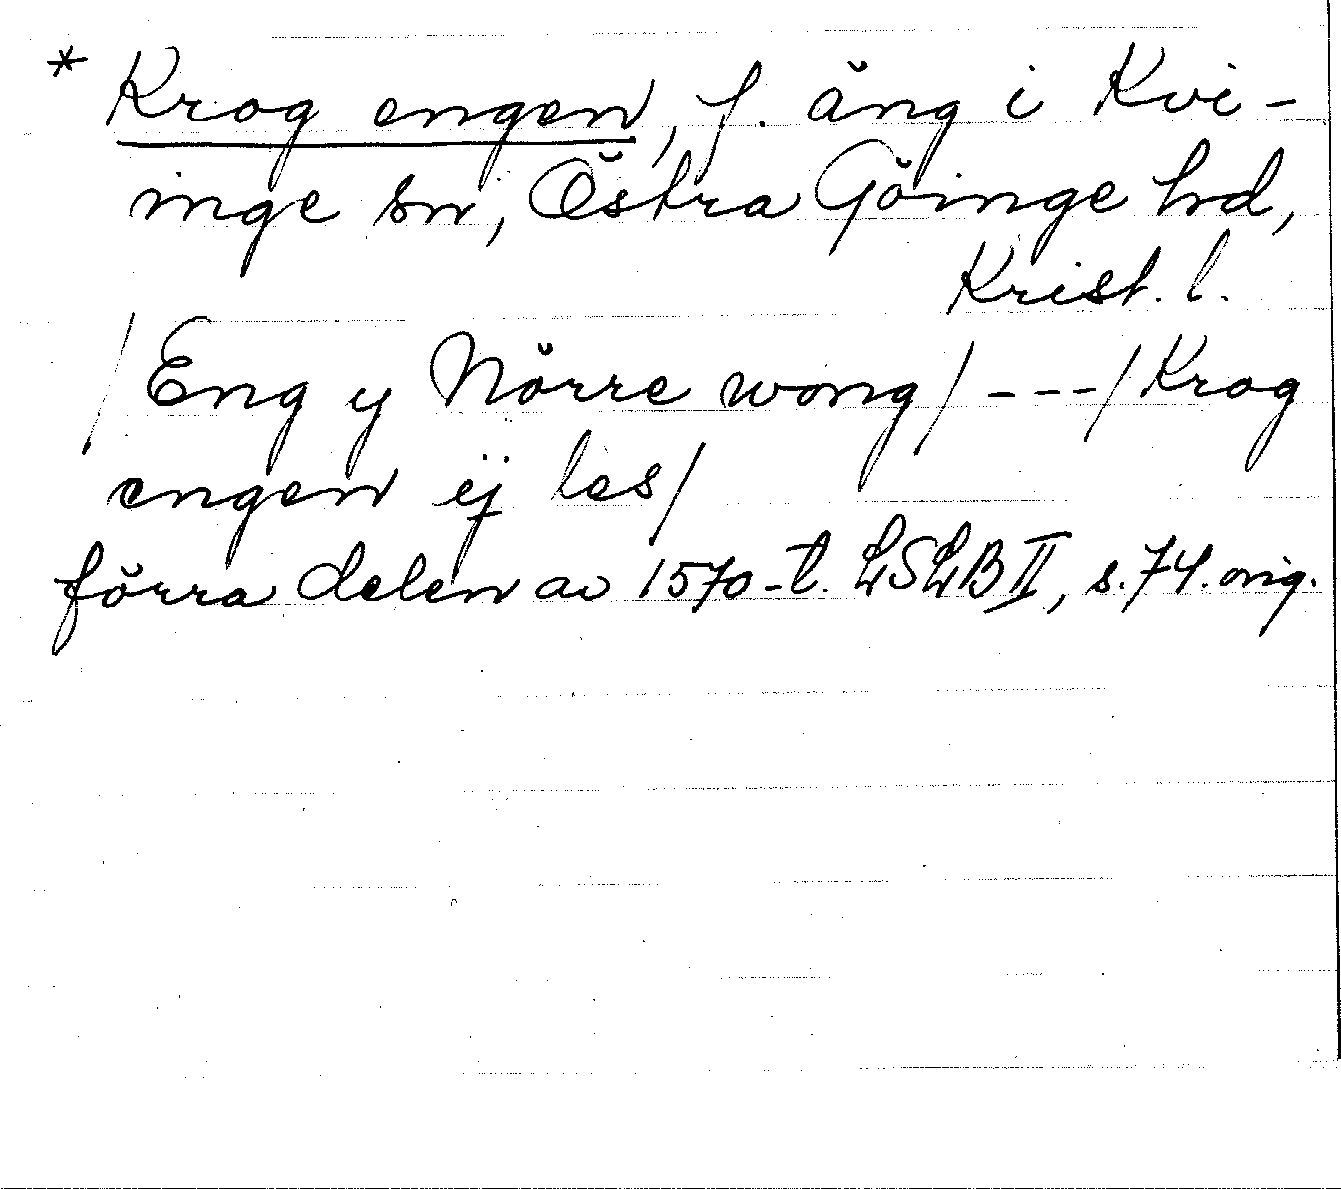 * Krog engen, f. äng i Kvi-
inge sn, Östra Göinge hd,
Krist. l.
/Eng y Nörre wong/---/Krog
engen ÿ les/
förra delen av 1570-t. LSLB II, s.74. orig.